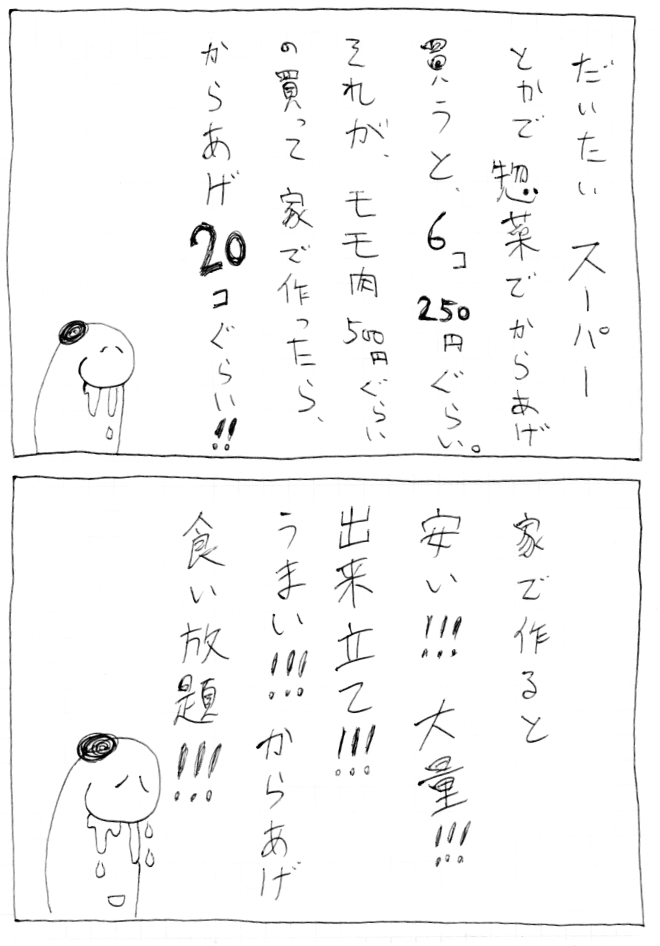 だいたい スーパー
とかで 惣菜でからあげ
買うと、6コ 250円ぐらい。
それが、モモ肉 500円ぐらい
の買って 家で作ったら、
からあげ 20コぐらい!!
家で作ると
安い!!! 大量!!!
出来立て!!!
うまい!!! からあげ
食い放題!!!